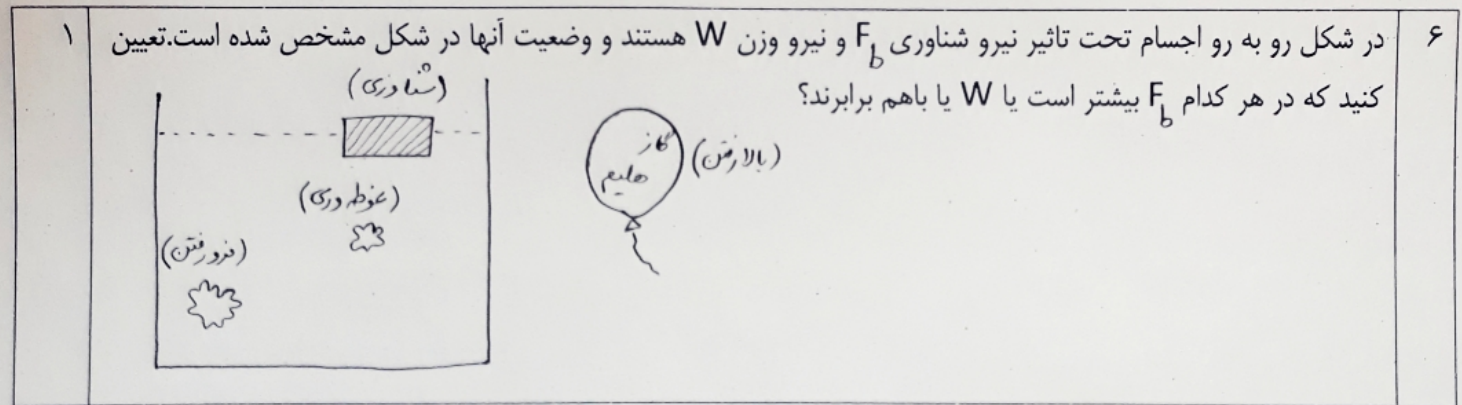 ۶
در شکل رو به رو اجسام تحت تاثیر نیرو شناوری F_b و نیرو وزن W هستند و وضعیت آنها در شکل مشخص شده است.تعیین
کنید که در هر کدام F_b بیشتر است یا W یا باهم برابرند؟
۱
(شناوری)
(غوطه وری)
(فرو رفتن)
گاز
هلیم
(بالا رفتن)